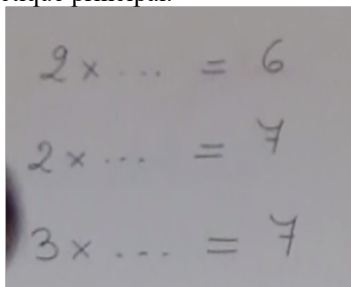 2 × ... = 6
2 × ... = 7
3 × ... = 7